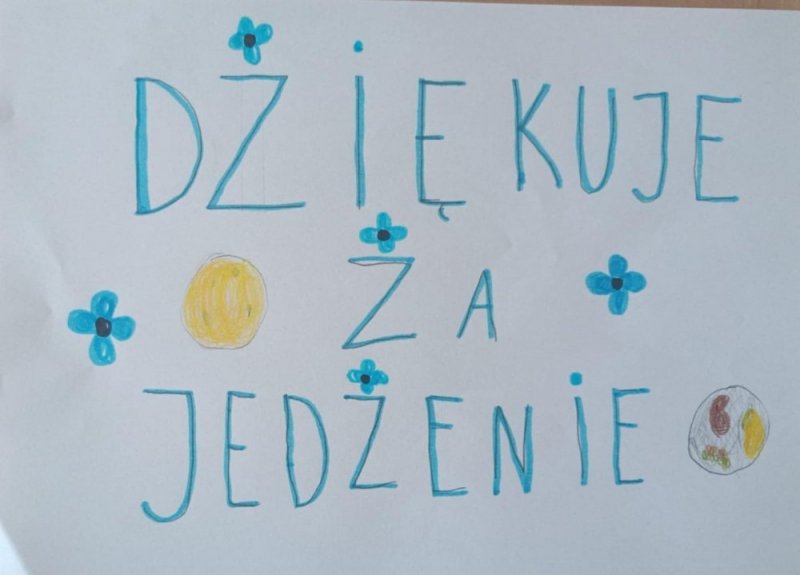 DZIĘKUJE
ZA
JEDZENIE